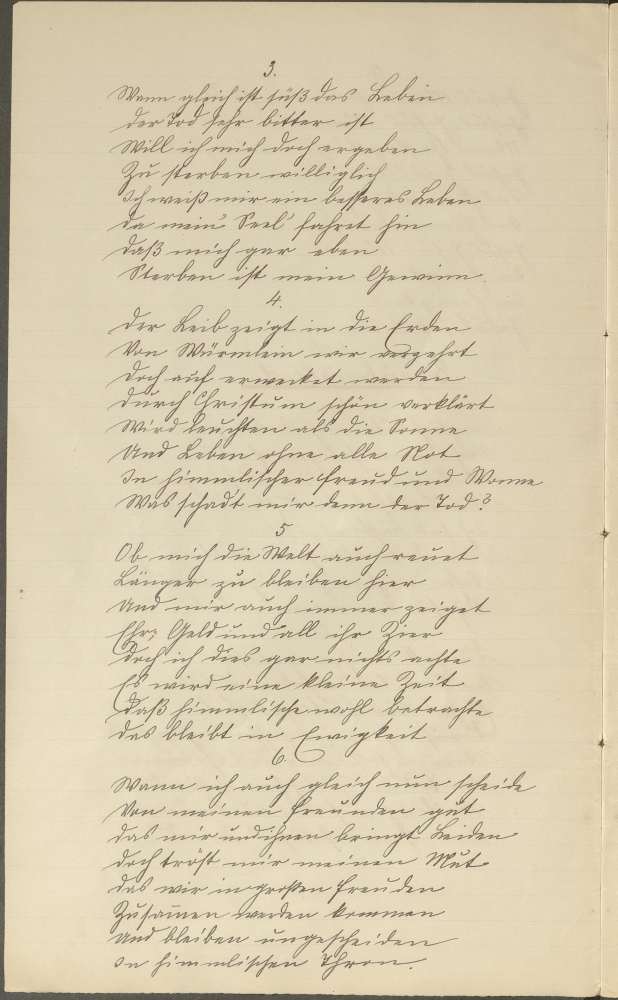 3.
Wenn gleich ist süß das Leben
der Tod sehr bitter ist
Will ich mich doch ergeben
Zu sterben williglich
Ich weiß mir ein besseres Leben
da mein' Seel' fahret hin
daß mich gar eben
Sterben ist mein Gewinn
4.
Der Leib zeigt in die Erden
Von Würmlein wir verzehrt
Doch auf erwecket werden
durch Christum schön verklärt
Wird leuchten als die Sonne
Und Leben ohne alle Not
In himmlischer Freud und Wonne
Was schadt mir denn der Tod?
5
Ob mich die Welt auch reuet
Länger zu bleiben hier
Und mir auch immer zeiget
Ehr, Geld und all ihr Zier
doch ich dies gar nichts achte
Es wird eine kleine Zeit
daß himmlische wohl betrachte
das bleibt in Ewigkeit
6.
Wann ich auch gleich nun scheide
Von meinen Freunden gut
das mir und ihnen bringt Leiden
doch tröst mir meinen Mut
das wir in großen Freuden
Zusam̄en werden kommen
und bleiben ungescheiden
In himmlischen Thron.